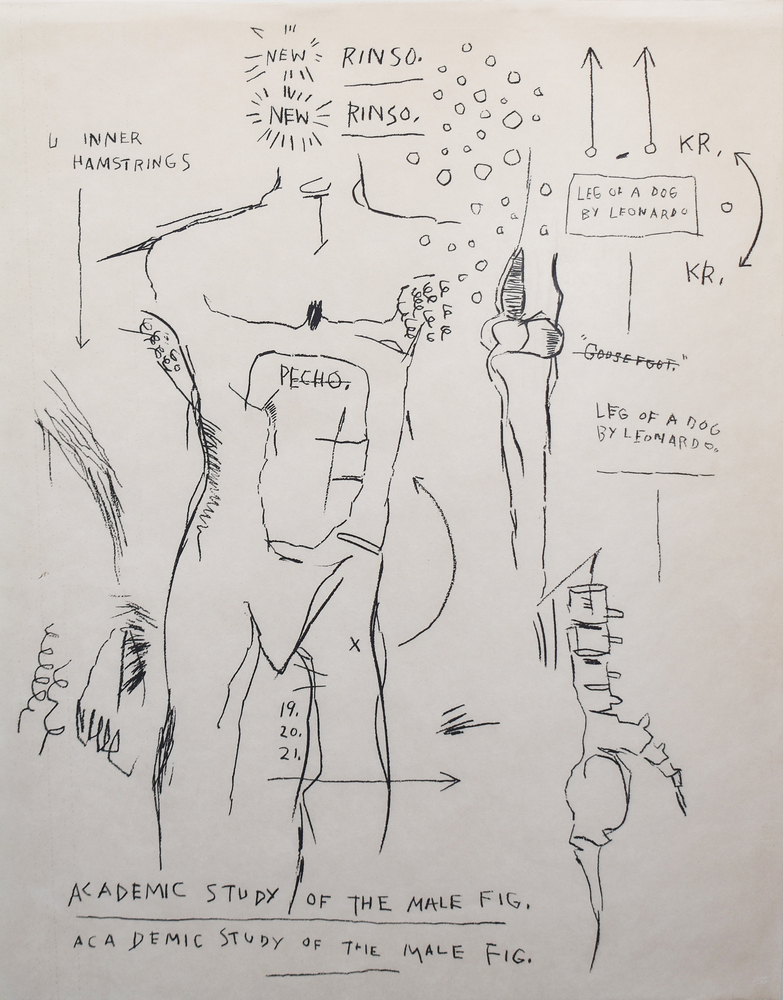 NEW RINSO.
NEW RINSO.
INNER
HAMSTRINGS
KR.
LEG OF A DOG
BY LEONARDO
KR.
"GOOSEFOOT."
PECHO.
LEG OF A DOG
BY LEONARDO.
X
19.
20.
21.
ACADEMIC STUDY OF THE MALE FIG.
ACADEMIC STUDY OF THE MALE FIG.